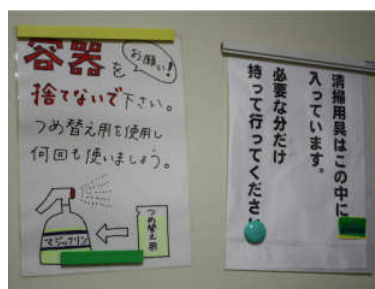 容器を
お願い!
捨てないで下さい。
つめ替え用を使用し
何回も使いましょう。
マジックリン
つめ替え用
清掃用具はこの中に
入っています。
必要な分だけ
持って行ってください